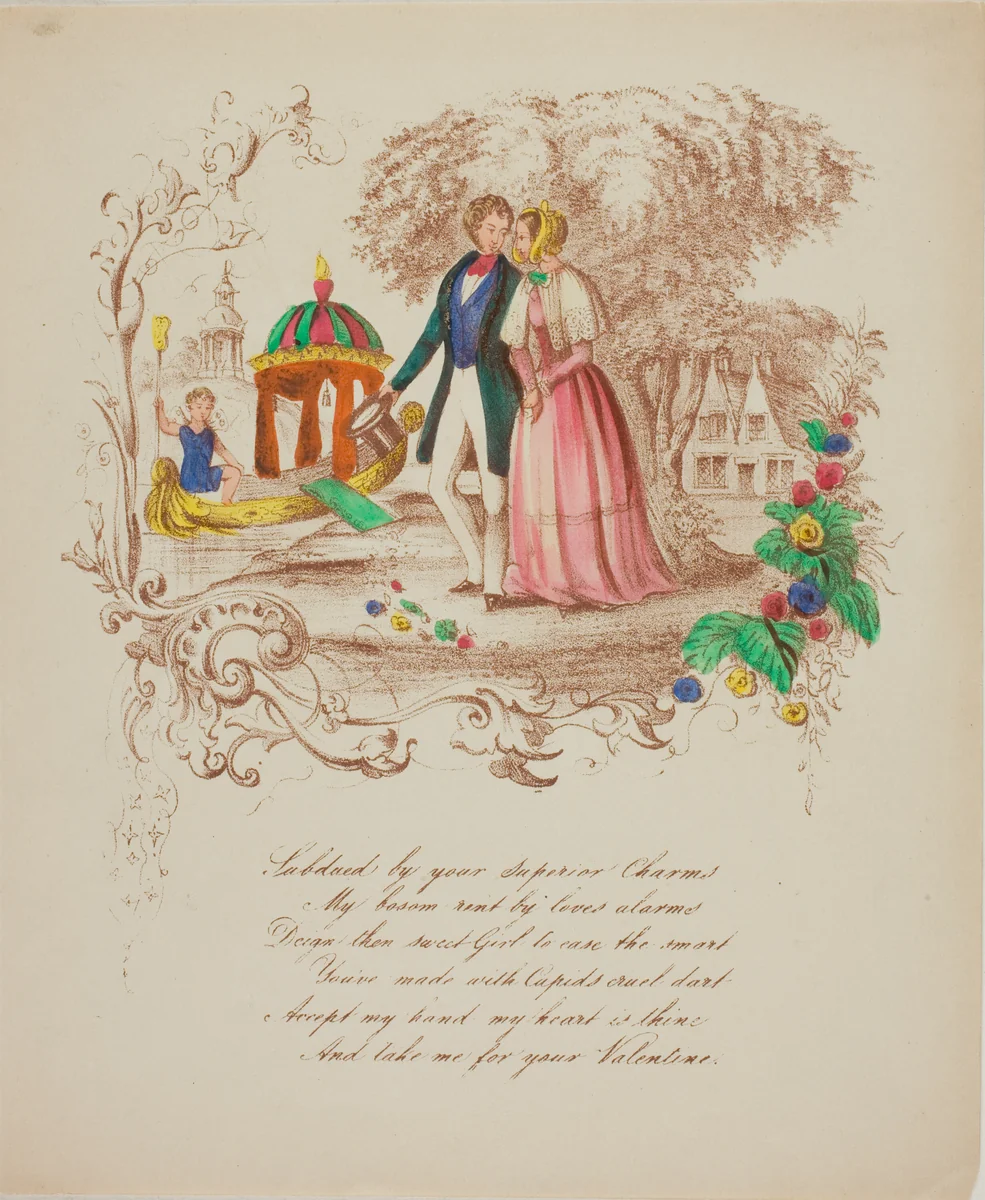 Subdued by your Superior Charms
My bosom rent by loves alarms
Deign then sweet Girl to ease the smart
You've made with Cupids cruel dart
Accept my hand my heart is thine
And take me for your Valentine.